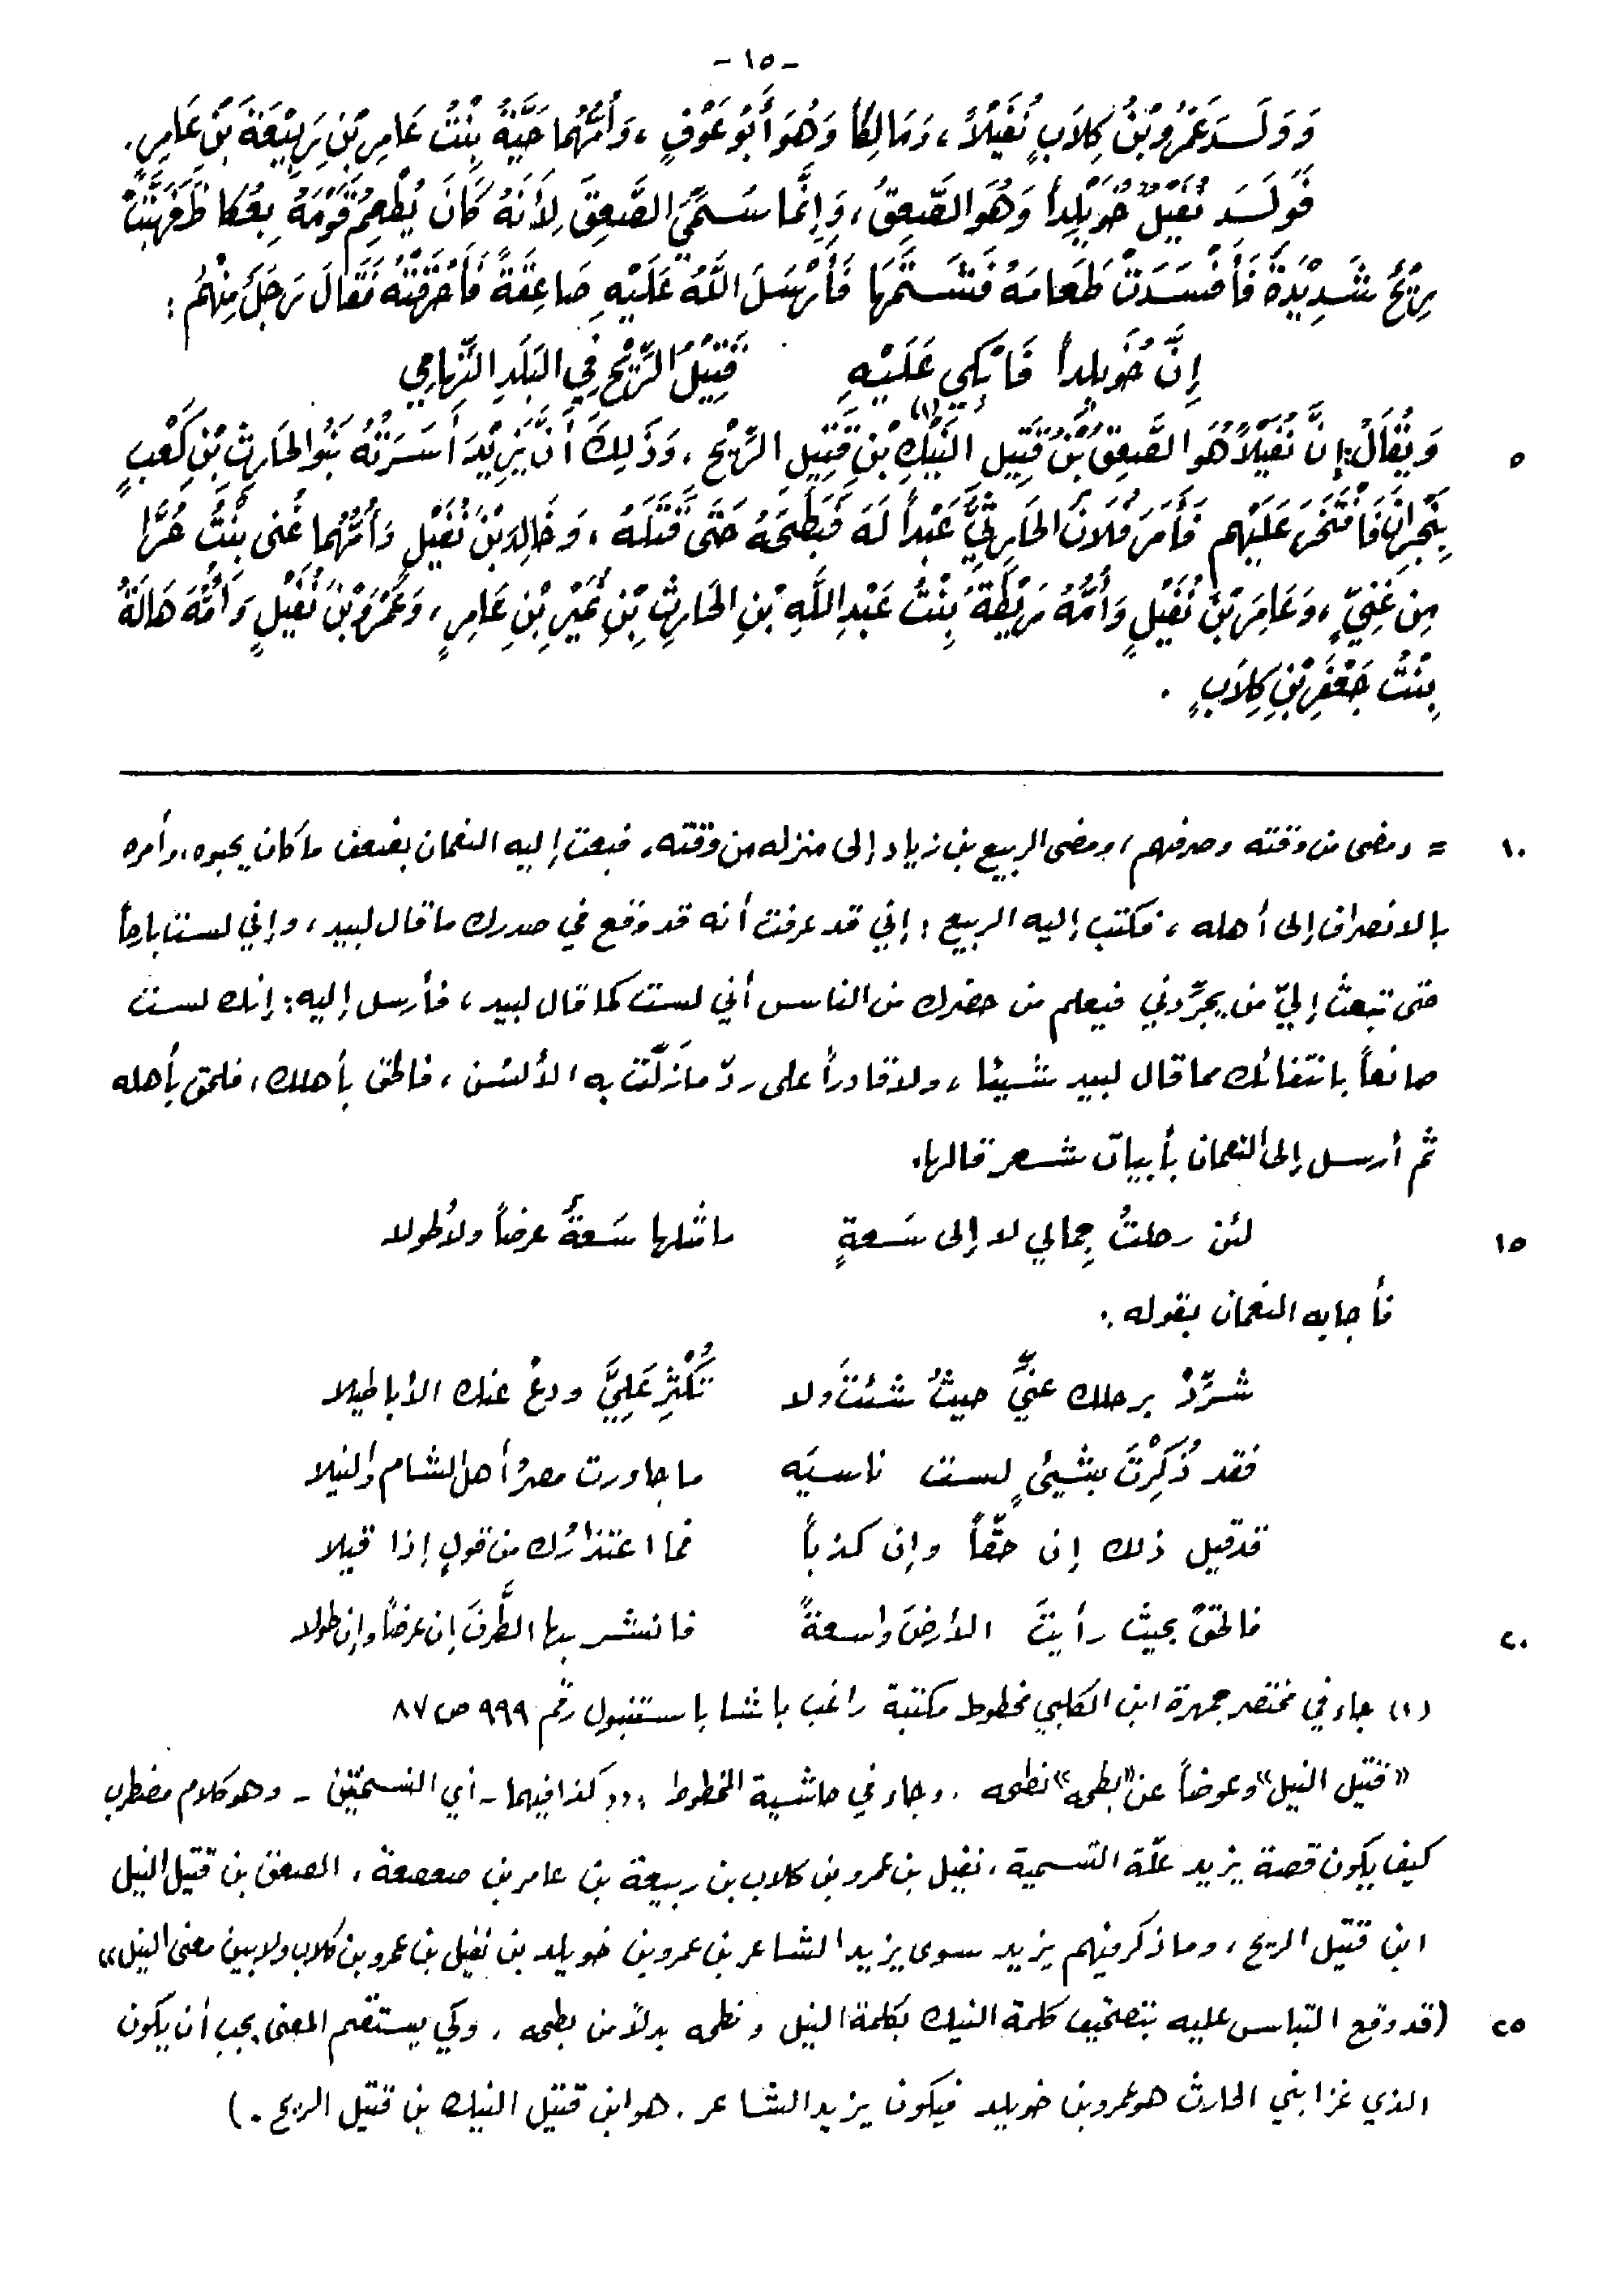 - ١٥ -
وَوَلَدَ عَمْرُو بْنُ كِلَابٍ نُفَيْلاً، وَمَالِكاً وَهُوَ أَبُو عَوْفٍ، وَأُمُّهُمَا حَيَّةُ بِنْتُ عَامِرِ بْنِ رَبِيْعَةَ بْنِ عَامِرٍ.
فَوَلَدَ نُفَيْلٌ خُوَيْلِداً وَهُوَ الصَّعِقُ، وَإِنَّمَا سُمِّيَ الصَّعِقَ لِأَنَّهُ كَانَ يُطْعِمُ قَوْمَهُ بِعُكَاظَ فَهَبَّتْ
رِيْحٌ شَدِيْدَةٌ فَأَفْسَدَتْ طَعَامَهُ فَشَتَمَهَا فَأَرْسَلَ اللَّهُ عَلَيْهِ صَاعِقَةً فَأَحْرَقَتْهُ فَقَالَ رَجُلٌ مِنْهُم:
إِنَّ خُوَيْلِداً فَابْكِي عَلَيْهِ قَتِيْلُ الرِّيْحِ فِي البَلَدِ التِّهَامِي
٥ وَيُقَالُ: إِنَّ نُفَيْلاً هُوَ الصَّعِقُ بْنُ قَتِيْلِ النَّيْكِ (١) بْنِ قَتِيْلِ الرِّيْحِ، وَذَلِكَ أَنَّ يَزِيْدَ أَسَرَتْهُ بَنُو الحَارِثِ بْنِ كَعْبٍ
بِنَجْرَانَ فَافْتَخَرَ عَلَيْهِم فَأَمَرَ فُلَانٌ الحَارِثِيُّ عَبْداً لَهُ فَبَطَحَهُ حَتَّى قَتَلَهُ، وَخَالِدَ بْنَ نُفَيْلٍ وَأُمُّهُمَا غُنَى بِنْتُ حُرٍّ
مِن غَنِيٍّ، وَعَامِرَ بْنَ نُفَيْلٍ وَأُمُّهُ رَيْطَةُ بِنْتُ عَبْدِ اللَّهِ بْنِ الحَارِثِ بْنِ نُمَيْرِ بْنِ عَامِرٍ، وَعَمْرَو بْنَ نُفَيْلٍ وَأُمُّهُ هَالَةُ
بِنْتُ جَعْفَرِ بْنِ كِلَابٍ.
١٠ = ومضى من وقته وصرفهم، ومضى الربيع بن زياد إلى منزله من وقته، فبعث إليه النعمان بضعف ما كان يحبوه، وأمره
بالانصراف إلى أهله، فكتب إليه الربيع: إني قد عرفت أنه قد وقع في صدرك ما قال لبيد، وإني لست بارحاً
حتى تبعث إليّ من يجرّدني فيعلم من حضرك من الناس أني لست كما قال لبيد، فأرسل إليه: إنك لست
صانعاً بانتفائك مما قال لبيد شيئا، ولا قادراً على ردّ ما زَلّت به الألسُن، فالحق بأهلك، فلحق بأهله
ثم أرسل إلى النعمان بأبيات شعر قالها.
١٥ لئن رحلتُ جِمالي لا إلى سَعةٍ ما مثلها سَعةٌ عرضاً ولا طولا
فأجابه النعمان بقوله:
شرِّدْ برحلك عنِّي حيثُ شئتَ ولا تُكْثِر عَلَيَّ ودعْ عنك الأباطيلا
فقد ذُكِرْتَ بشيئٍ لست ناسيَه ما جاورت مصرُ أهل الشام والنيلا
قد قيل ذلك إن حقّاً وإن كذباً فما اعتذارُك من قولٍ إذا قيلا
٢٠ فالحقْ بحيثُ رأيتَ الأرضَ واسعةً فانشر بها الطَّرفَ إن عرضاً وإن طولا
(١) جاء في مختصر جمهرة ابن الكلبي مخطوط مكتبة راغب باشا باستنبول رقم ٩٩٩ ص ٨٧
«قتيل النيل» وعوضاً عن «بطحه» نطحه. وجاء في حاشية المخطوط: ((كذا فيهما - أي النسختين - وهو كلام مضطرب
كيف يكون قصة يزيد علّة التسمية، نفيل بن عمرو بن كلاب بن ربيعة بن عامر بن صعصعة، الصعق بن قتيل النيل
ابن قتيل الريح، وما ذكر فيهم يزيد سوى يزيد الشاعر بن عمرو بن خويلد بن نفيل بن عمرو بن كلاب ولا يبين معنى النيل))
٢٥ (قد وقع التباس عليه بتصحيف كلمة النيك بكلمة النيل ونطحه بدلاً من بطحه. وكي يستقم المعنى يجب أن يكون
الذي غزا بني الحارث هو عمرو بن خويلد فيكون يزيد الشاعر. هو ابن قتيل النيك بن قتيل الريح.)